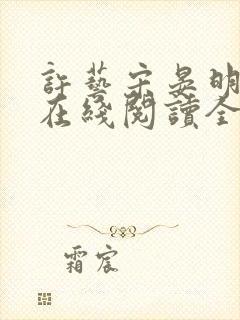 許藝宋晏明
在綫閱讀全
霜宸